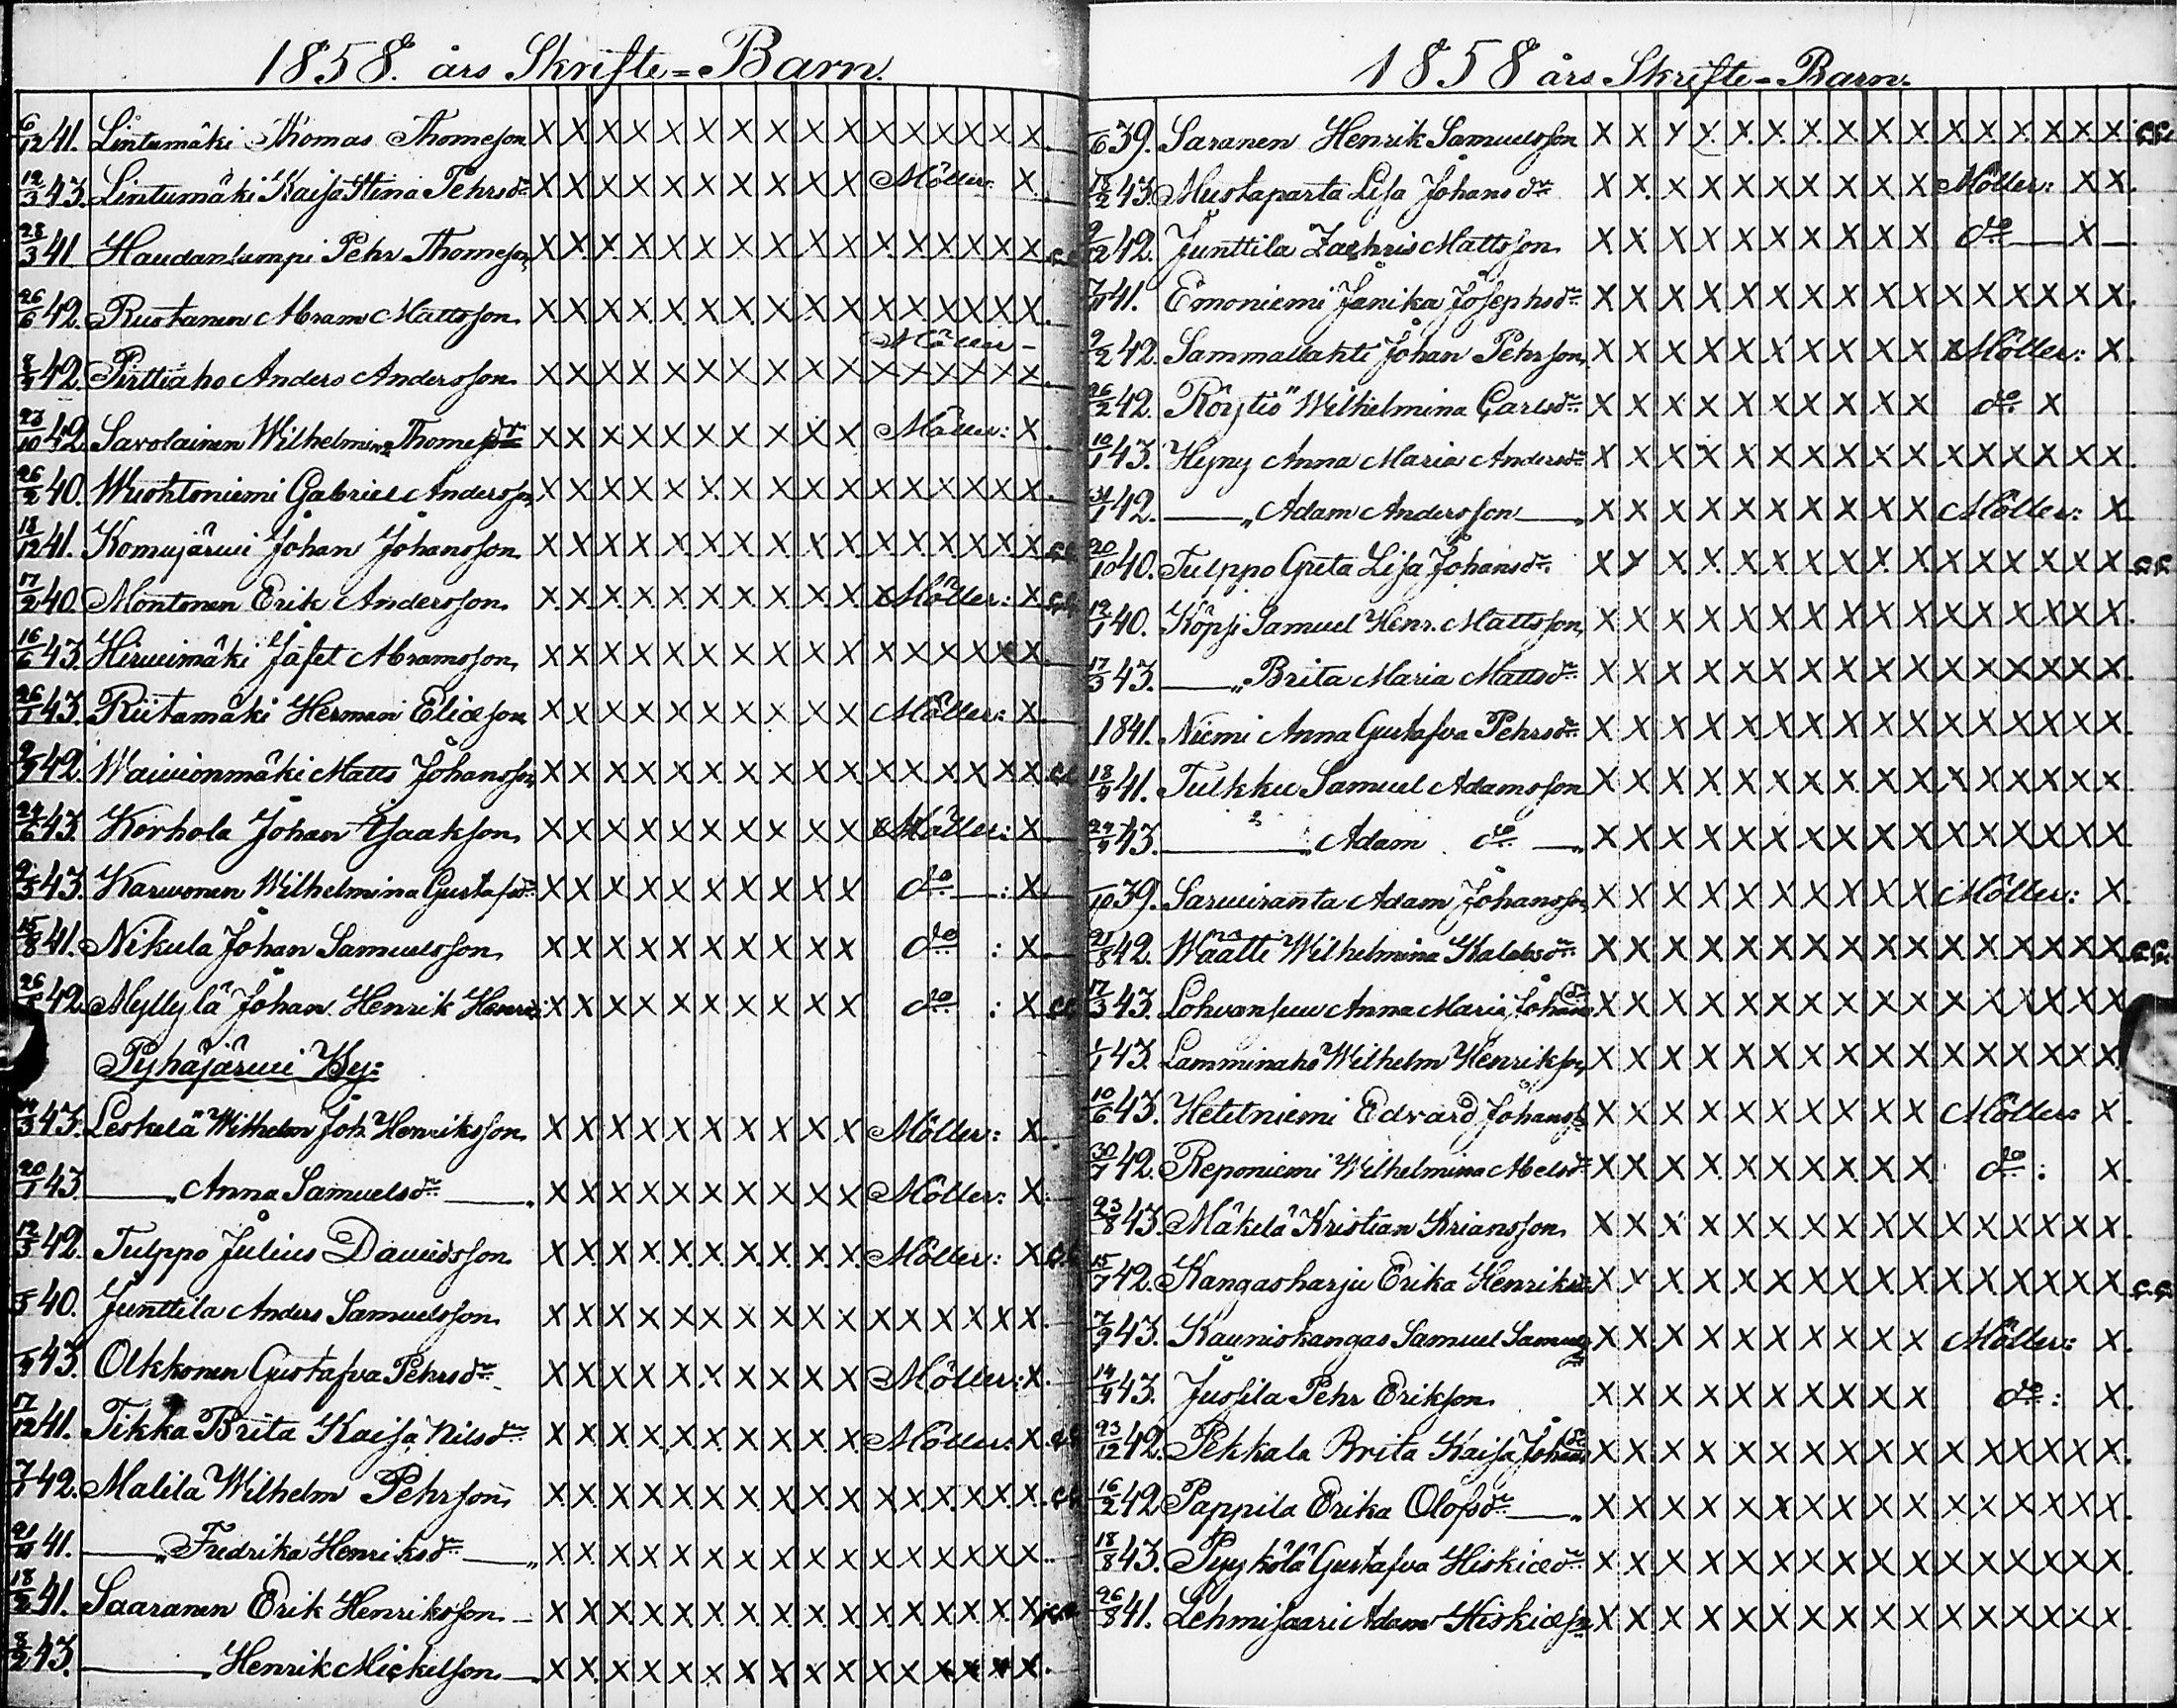 1858. års Skrifte=Barn.
6/12 41. Lintumäki Thomas Thomeson X X X X X X X X X X X X X X X X.
12/3 43. Lintumäki Kaisa Stina Pehrsdr X X X X X X X X X X Möller: X.
28/3 41 Haudanlampi Pehr Thomeson X X X X X X X X X X X X X X X X
26/6 42. Rustanen Abram Mattsson X X X X X X X X X X X X X X X X.
Möller
42. Pirttiaho Anders Andersson X X X X X X X X X X X X X X X X.
23/10 42. Savolainen Wilhelmina Thomesdr X X X X X X X X X X Möller: X.
26/2 40. Wuohtoniemi Gabriel Andersson X X X X X X X X X X X X X X X X.
18/12 41. Komujärwi Johan Johansson X X X X X X X X X X X X X X X X
17/2 40 Montonen Erik Andersson X X X X X X X X X X Möller: X
16/6 43. Hirwimäki Jafet Abramsson X X X X X X X X X X X X X X X X.
26/1 43. Riitamäki Herman Eliæson X X X X X X X X X X Möller: X.
42. Waiwionmäki Matts Johansson X X X X X X X X X X X X X X X X
24/6 43. Korhola Johan Isaakson X X X X X X X X X X Möller: X
43. Karwonen Wilhelmina Gustafsdr X X X X X X X X X X do : X
15/8 41. Nikula Johan Samuelsson X X X X X X X X X X do : X
42. Myllylä Johan Henrik X X X X X X X X X X do : X
Pyhäjärwi By:
43. Leskelä Wilhelm Joh. Henriksson X X X X X X X X X X Möller: X.
20/1 43. — " Anna Samuelsdr — " X X X X X X X X X X Möller: X.
12/3 42. Tulppo Julius Davidsson X X X X X X X X X X Möller: X
40. Junttila Anders Samuelsson X X X X X X X X X X X X X X X X.
43. Olkkonen Gustafva Pehrsdr X X X X X X X X X X Möller: X.
17/12 41. Tikka Brita Kaisa Nilsdr X X X X X X X X X X Möller: X.
42. Malila Wilhelm Pehrson X X X X X X X X X X X X X X X X.
41. — " Fredrika Henriksdr — " X X X X X X X X X X X X X X X X.
18/2 41. Saaranen Erik Henriksson X X X X X X X X X X X X X X X X
8/2 43. — " Henrik Mickelson X X X X X X X X X X X X X X X X.
1858 års Skrifte=Barn.
/6 39. Saranen Henrik Samuelsson X X X X X X X X X X X X X X X X.
43. Mustaparta Lisa Johansdr X X X X X X X X X X Möller: X X.
9/12 42. Junttila Zachris Mattsson X X X X X X X X X X do — X —
7/11 41. Emoniemi Janika Josephsdr X X X X X X X X X X X X X X X X.
9/2 42. Sammallahti Johan Pehrson X X X X X X X X X X Möller: X.
26/2 42. Röytiö Wilhelmina Carlsdr X X X X X X X X X X do X
10/1 43. Hyny Anna Maria Andersdr X X X X X X X X X X X X X X X X.
31/1 42. — " Adam Andersson — " X X X X X X X X X X Möller: X.
20/10 40. Tulppo Greta Lisa Johansdr. X X X X X X X X X X X X X X X X
40. Köpsi Samuel Henr. Mattsson X X X X X X X X X X X X X X X X.
17/3 43. — " Brita Maria Mattsdr X X X X X X X X X X X X X X X X.
1841. Niemi Anna Gustafva Pehrsdr X X X X X X X X X X X X X X X X.
41. Tulkku Samuel Adamsson X X X X X X X X X X X X X X X X.
43. — " Adam do — " X X X X X X X X X X X X X X X X.
/10 39. Sarwiranta Adam Johansson X X X X X X X X X X Möller: X.
21/8 42. Määttä Wilhelmina Kalebsdr X X X X X X X X X X X X X X X X
17/3 43. Lohvansuu Anna Maria Johansdr X X X X X X X X X X X X X X X X
1/1 43. Lamminaho Wilhelm Henrikson X X X X X X X X X X X X X X X X
10/6 43. Hetetniemi Edvard Johanss X X X X X X X X X X Möller: X.
30/7 42. Reponiemi Wilhelmina Abelsdr X X X X X X X X X X do : X.
23/8 43. Mäkelä Kristian Kriansson X X X X X X X X X X X X X X X X.
15/7 42. Kangasharju Erika Henriksdr X X X X X X X X X X X X X X X X
43. Kauniskangas Samuel X X X X X X X X X X Möller: X.
43. Jussila Pehr Erikson X X X X X X X X X X do : X.
23/12 42. Pekkala Brita Kaisa Johansdr X X X X X X X X X X X X X X X X.
16/2 42 Pappila Erika Olofsdr — " X X X X X X X X X X X X X X X X.
18/8 43. Pyykölä Gustafva Hiskiædr X X X X X X X X X X X X X X X X.
26/8 41. Lehmisaari Adam Hiskiæson X X X X X X X X X X X X X X X X.